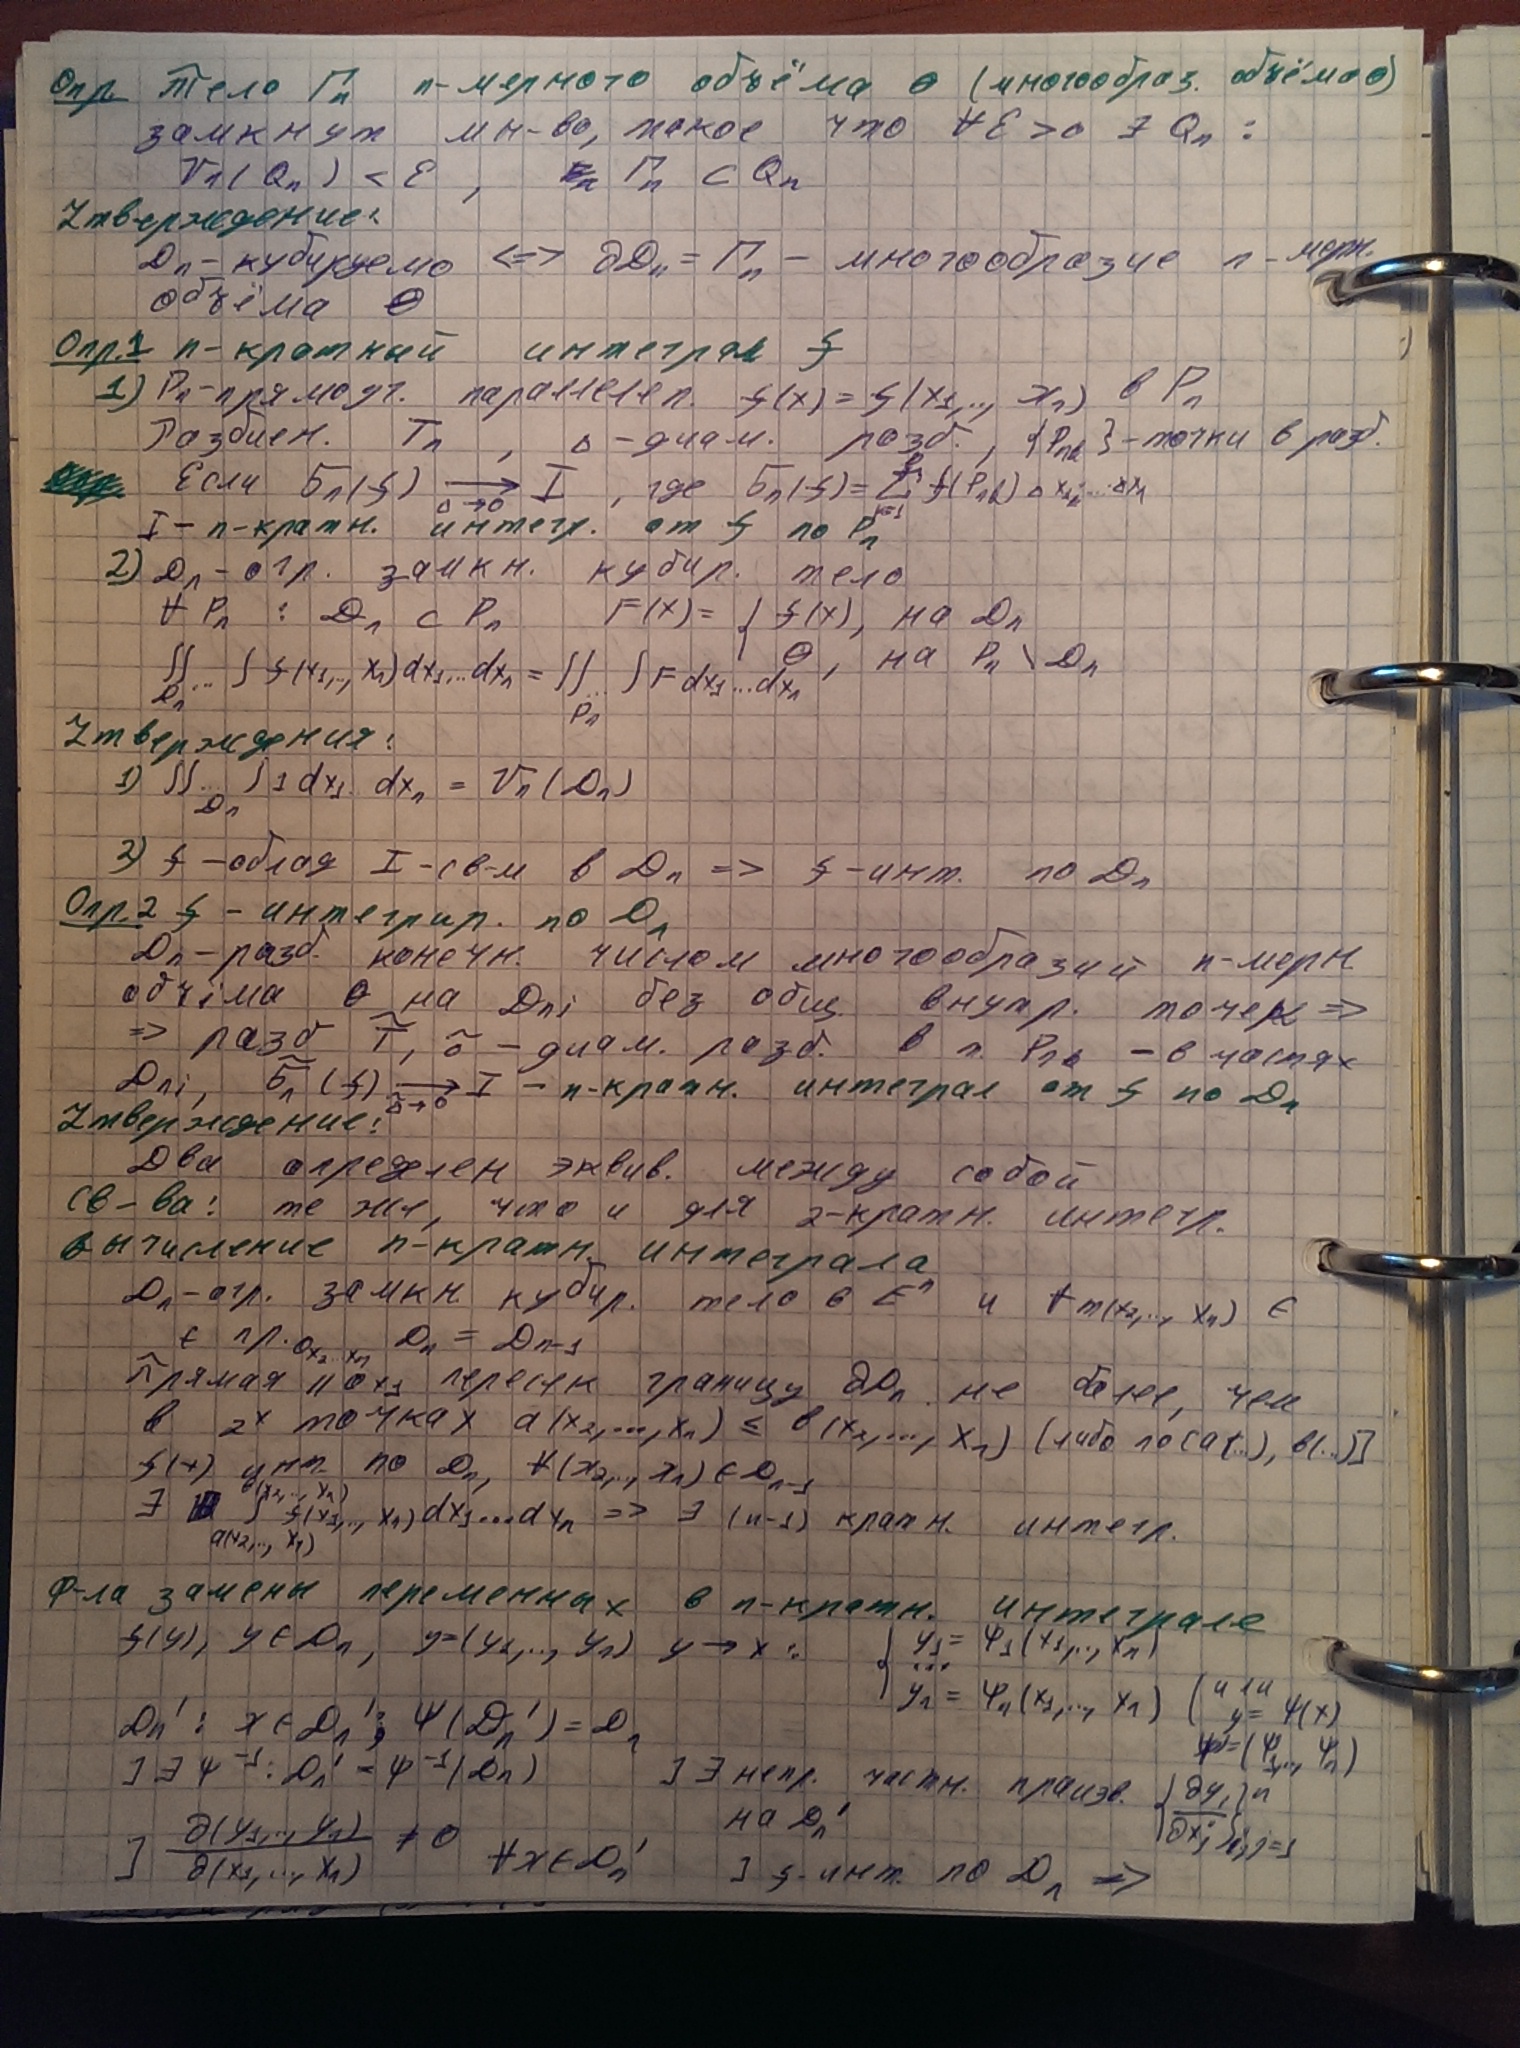 Опр Тело Гₙ n-мерного объёма 0 (многообраз. объёма 0)
замкнут мн-во, такое что ∀ε>0 ∃ Qₙ :
Vₙ(Qₙ) < ε , Гₙ ⊂ Qₙ
Утверждение:
Dₙ-кубируемо <=> ∂Dₙ = Гₙ - многообразие n-мерн.
объёма 0
Опр.1 n-кратный интеграл f
1) Pₙ-прямоуг. параллелеп. f(x) = f(x₁,.., xₙ) в Pₙ
Разбиен. Tₙ , Δ -диам. разб., {Pₙₖ}-точки в разб.
Если σₙ(f) ⟶ I , где σₙ(f)=∑ f(Pₙₖ) Δx₁ ... Δxₙ
Δ→0 k=1
I - n-кратн. интегр. от f по Pₙ
2) Dₙ-огр. замкн. кубир. тело
∀ Pₙ : Dₙ ⊂ Pₙ F(x) = { f(x), на Dₙ
0, на Pₙ \ Dₙ
∫∫...∫ f(x₁,.., xₙ)dx₁...dxₙ = ∫∫...∫ F dx₁...dxₙ
Dₙ Pₙ
Утверждения:
1) ∫∫...∫ 1 dx₁ dxₙ = Vₙ(Dₙ)
Dₙ
2) f -облад I-св-м в Dₙ => f-инт. по Dₙ
Опр.2 f - интегрир. по Dₙ
Dₙ-разб. конечн. числом многообразий n-мерн.
объёма 0 на Dₙᵢ без общ внутр. точек =>
=> разб T̃, Δ̃ - диам. разб. в n Pₙₖ - в частях
Dₙᵢ, σ̃ₙ(f) ⟶ I - n-кратн. интеграл от f по Dₙ
Δ̃→0
Утверждение:
Два определен эквив. между собой
Св-ва: те же, что и для 2-кратн. интегр.
Вычисление n-кратн. интеграла
Dₙ-огр. замкн. кубир. тело в Eⁿ и ∀m(x₂,..., xₙ) ∈
∈ пр. Ox₂...xₙ Dₙ = Dₙ₋₁
Прямая ∥ Ox₁ пересек границу ∂Dₙ не более, чем
в 2ˣ точках a(x₂,..., xₙ) ≤ b(x₂,..., xₙ) [либо по [a(...), b(...)]
f(x) инт. по Dₙ, ∀(x₂,.., xₙ)∈Dₙ₋₁
b(x₂,.., xₙ)
∃ ∫ f(x₁,.., xₙ)dx₁...dxₙ => ∃ (n-1) кратн. интегр.
a(x₂,.., xₙ)
Ф-ла замены переменных в n-кратн. интеграле
f(y), y∈Dₙ, y=(y₁,.., yₙ) y→x : { y₁ = ψ₁(x₁,.., xₙ)
...
yₙ = ψₙ(x₁,..., xₙ) (или
y = ψ(x)
ψ=(ψ₁,.., ψₙ)
Dₙ' : x∈Dₙ' ; ψ(Dₙ') = Dₙ
] ∃ ψ⁻¹ : Dₙ' = ψ⁻¹(Dₙ) ] ∃ непр. частн. произв. {∂yᵢ/∂xⱼ}ⁿ i,j=1
на Dₙ'
] ∂(y₁,.., yₙ)/∂(x₁,..., xₙ) ≠ 0 ∀x∈Dₙ' ] f-инт. по Dₙ =>